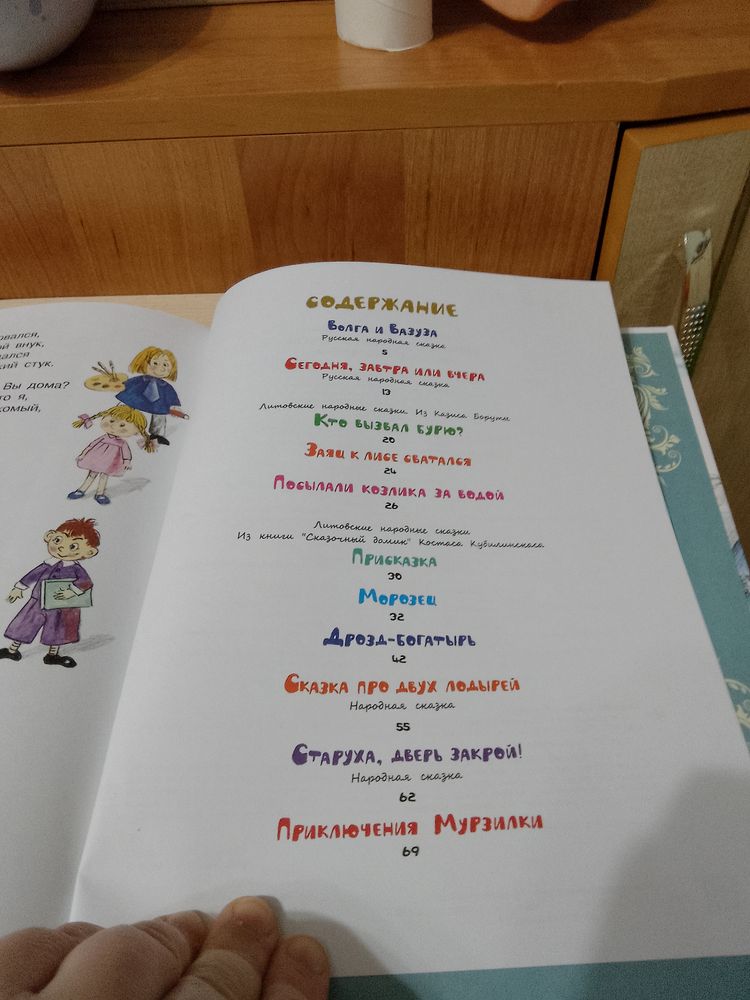 овался,
й внук,
ался
кий стук.
Вы дома?
то я,
комый,
СОДЕРЖАНИЕ
Волга и Вазуза
Русская народная сказка
5
Сегодня, завтра или вчера
Русская народная сказка
13
Литовские народные сказки Из Казиса Борути
Кто вызвал бурю?
20
Заяц к лисе сватался
24
Посылали козлика за водой
26
Литовские народные сказки
Из книги "Сказочный домик" Костаса Кубилинскаса
Присказка
30
Морозец
32
Дрозд-богатырь
42
Сказка про двух лодырей
Народная сказка
55
Старуха, дверь закрой!
Народная сказка
62
Приключения Мурзилки
69